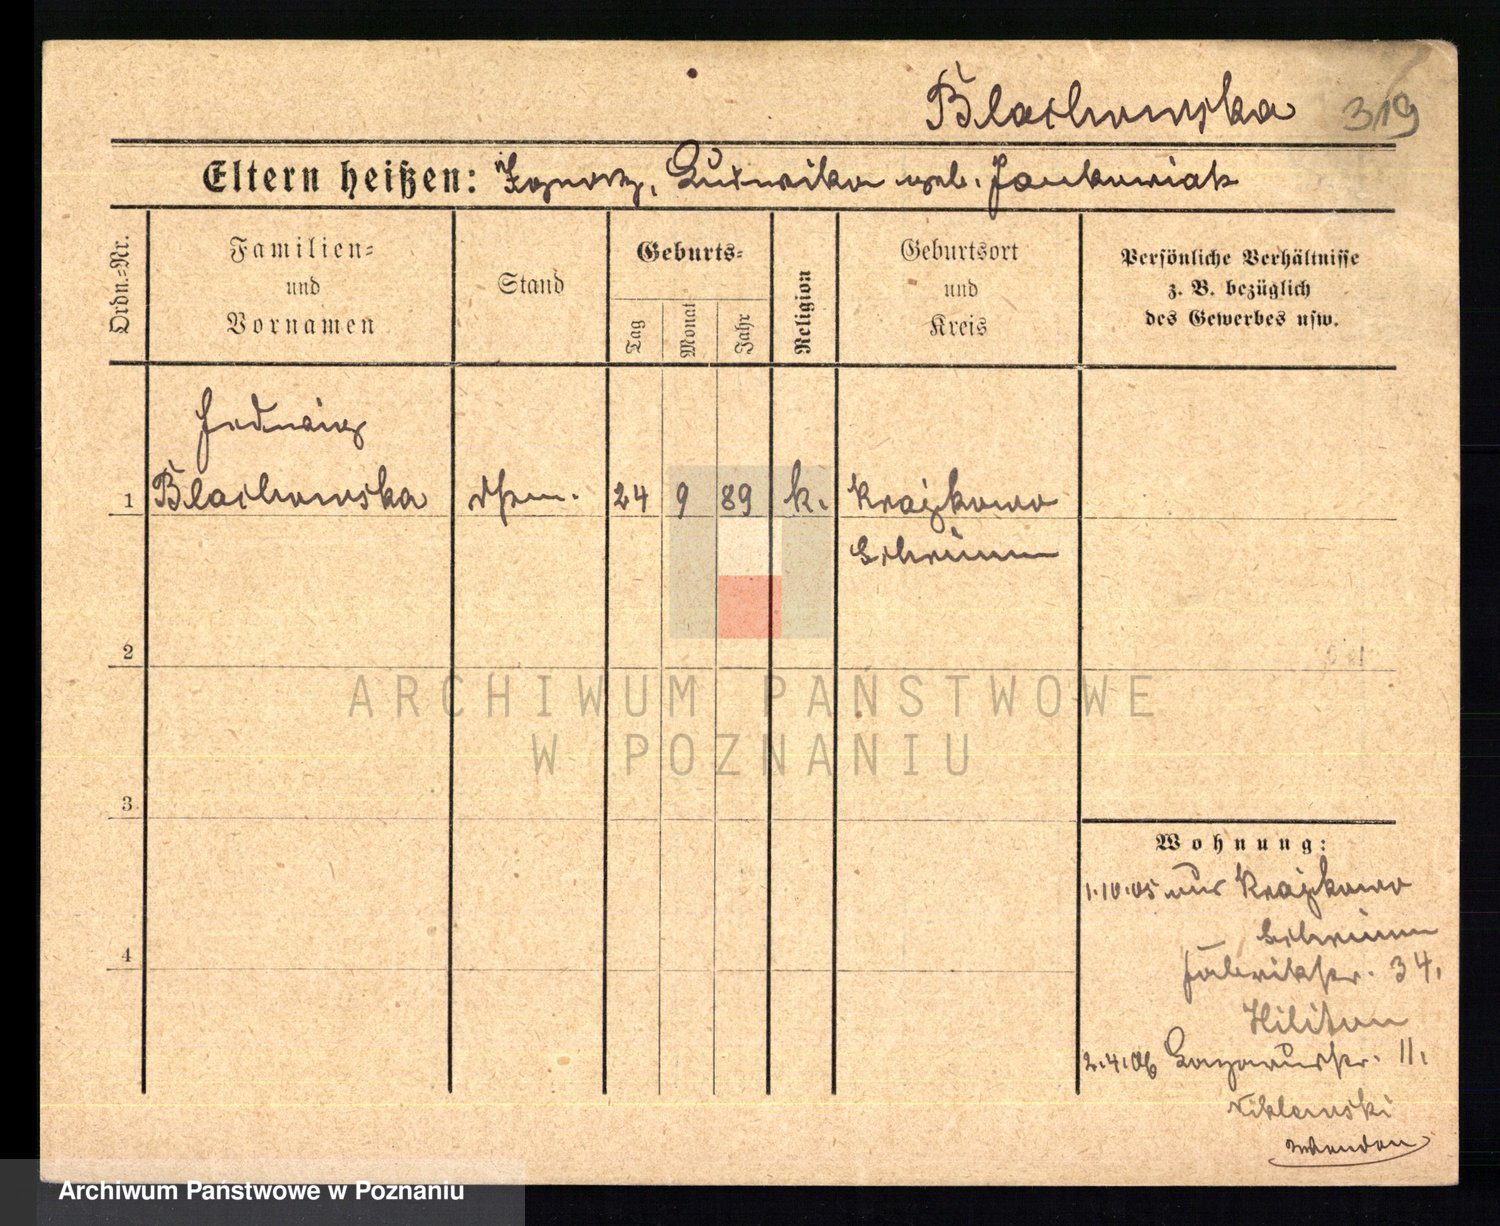 Blachowska 319
Eltern heißen: Ignatz, Ludwika geb. Jankowiak
Ordn.-Nr.
Familien-
und
Vornamen
Stand
Geburts-
Tag
Monat
Jahr
Religion
Geburtsort
und
Kreis
Persönliche Verhältnisse
z. B. bezüglich
des Gewerbes usw.
Hedwig
1 Blachowska 24 9 89 k. Krajkowo
Schrimm
2
ARCHIWUM PAŃSTWOWE
W POZNANIU
3
Wohnung:
1.10.05 aus Krajkowo
Schrimm
4
Fabrikstr. 34.
2.4.06 Lazarusstr. 11.
Archiwum Państwowe w Poznaniu